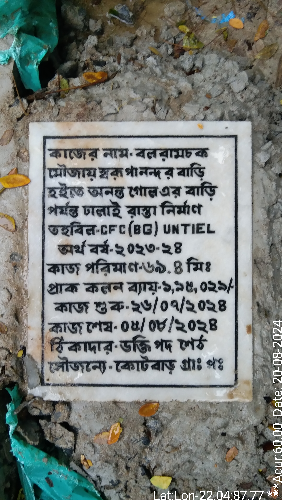 কাজের নাম- বলরামচক
মৌজায় পানন্দর বাড়ি
হইতে অনন্ত গোল এর বাড়ি
পর্যন্ত ঢালাই রাস্তা নির্মাণ
তহবিল-CFC(BG) UNTIEL
অর্থ বর্ষ-২০২৩-২৪
কাজ পরিমাণ-৬৯.৪ মিঃ
প্রাক কলন ব্যায়-১,৯৫,০২৯/-
কাজ শুরু-২৬/০৭/২০২৪
কাজ শেষ-০৪/০৮/২০২৪
ঠিকাদার- ভক্তি পদ শেঠ
সৌজন্যে-কোটবাড় গ্রাঃ পঃ
Lat:Lon-22.04:87.77
**Acur:60.00, Date: 20-08-2024